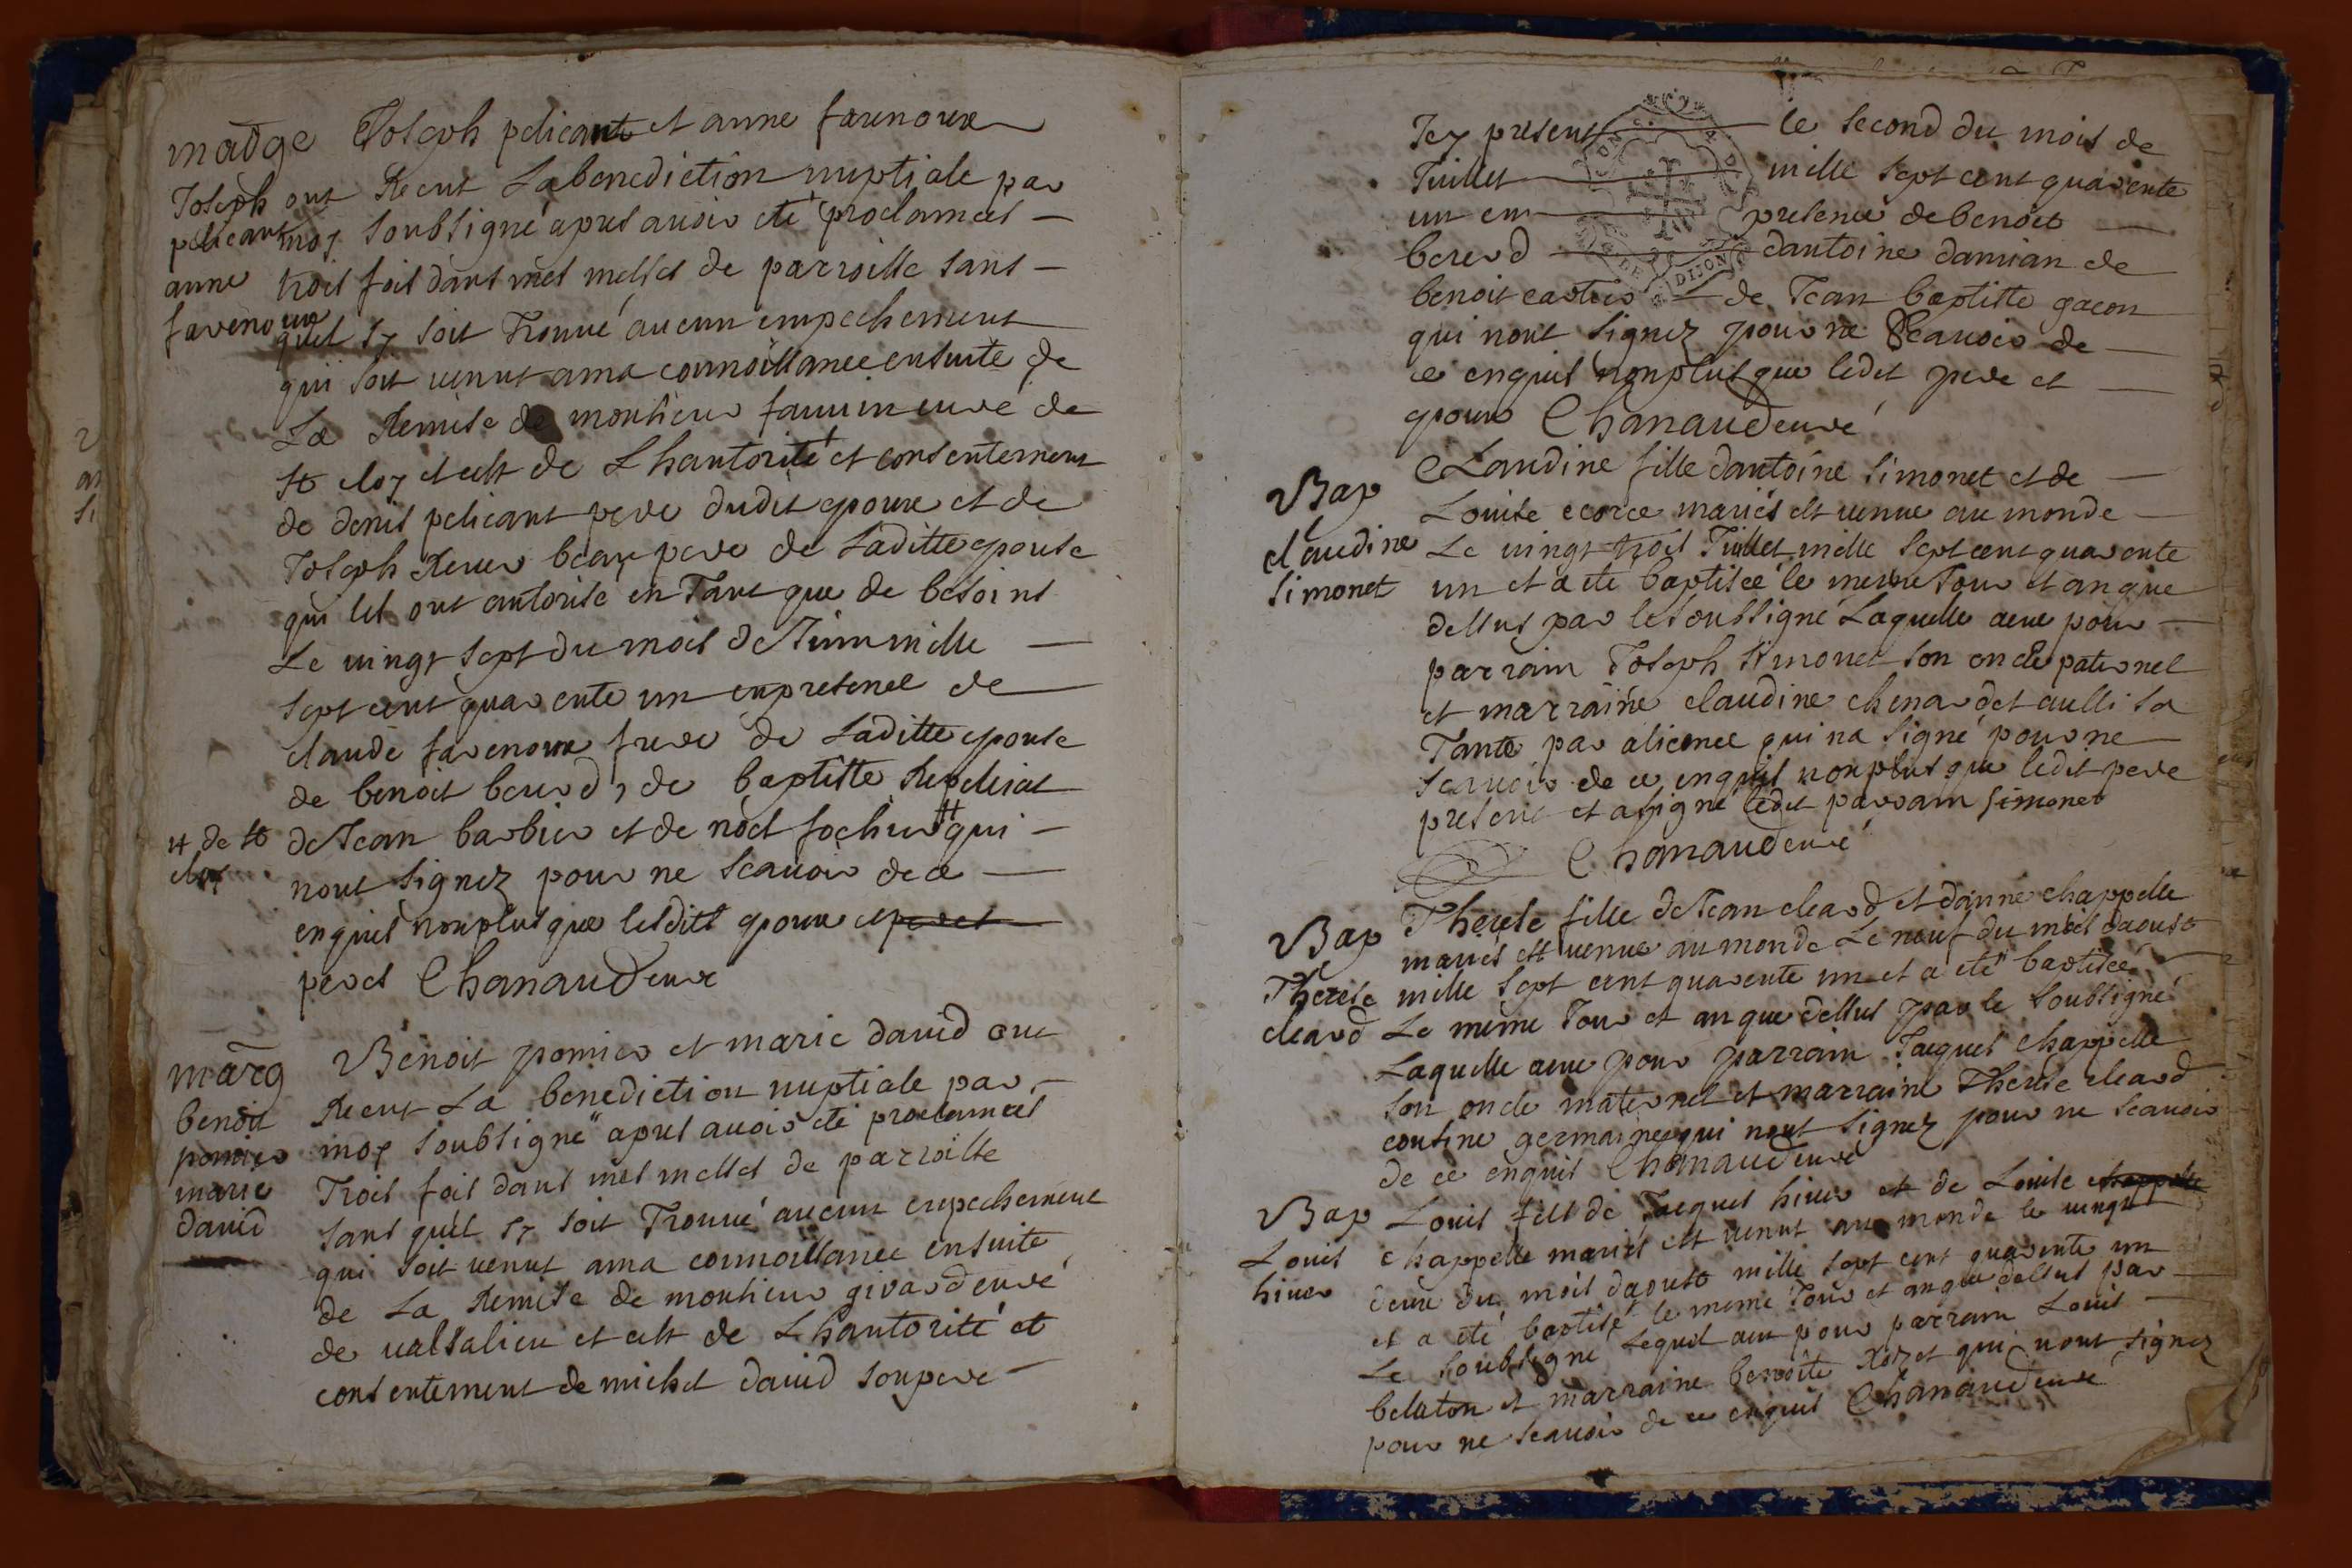 madge Joseph pelicant et anne farenoux
Joseph ont Receut La benediction nuptiale par
pelicant moy soubsigné apres auoir eté proclamees
anne trois fois dans mes messes de parroisse sans
farenoux quil sy soit Trouué aucun empechement
qui soit uenut a ma connoissance ensuite de
La Remise de monsieur fauuin curé de
st eloy et est de L hautorité et consentement
de denis pelicant pere dudit epoux et de
Joseph Reuer beau pere de Laditte epouse
qui les ont autorisé en Tant que de besoins
Le uingt sept du mois de Juin mille
sept cent quarente un en presence de
claude farenoux frere de Laditte epouse
de benoit bererd, de baptiste
# de st de Jean barbier et de noel focheur # qui
eloy nont signez pour ne scauoir de ce
enquis non plus que lesdits epoux et peres
peres Chanaud curé
marg Benoit pomier et marie dauid ont
benoit Receut La benediction nuptiale par
pomier moy soubsigné apres auoir eté proclamees
marie Trois fois dans mes messes de parroisse
dauid sans quil sy soit Trouué aucun empechement
qui soit uenut a ma connoissance ensuite
de La Remise de monsieur girard curé
de ualsalieu et est de L hautorité et
consentement de michel dauid son pere
Icy present le second du mois de
Juillet mille sept cent quarente
un en presence de benoit
bererd dantoine damian de
benoit cartier de Jean baptiste gacon
qui nont signez pour ne Scauoir de
ce enquis non plus que ledit pere et
epoux Chanaud curé
Bap Claudine fille dantoine simonet et de
claudine Louise ecorce mariés est uenue au monde
simonet Le uingt trois Juillet mille sept cent quarente
un et a eté baptisée le meme Jour et an que
dessus par le soubsigné Laquelle a eue pour
parrain Joseph simonet son oncle paternel
et marraine claudine chenardet aussi sa
Tante par alience qui na signé pour ne
scauoir de ce enquis non plus que ledit pere
present et a signé ledit parrain simonet
Chanaud curé
Bap Therese fille de Jean cleard et danne chappelle
mariés est uenue au monde Le neuf du mois daoust
Therese mille sept cent quarente un et a eté baptisée
cleard Le meme Jour et an que dessus par le soubsigné
Laquelle a eue pour parrain Jacques chappelle
son oncle maternel et marraine Therese cleard
cousine germaine qui nont signez pour ne scauoir
de ce enquis Chanaud curé
Bap Louis fils de Jacques hiuer et de Louise chappelle
Louis chappelle mariés est uenut au monde le uingt
hiuer deux du mois daoust mille sept cent quarente un
et a eté baptisé le meme Jour et an que dessus par
Le soubsigné Lequel a eut pour parrain Louis
belaton et marraine benoîte Rozet qui nont signez
pour ne scauoir de ce enquis Chanaud curé